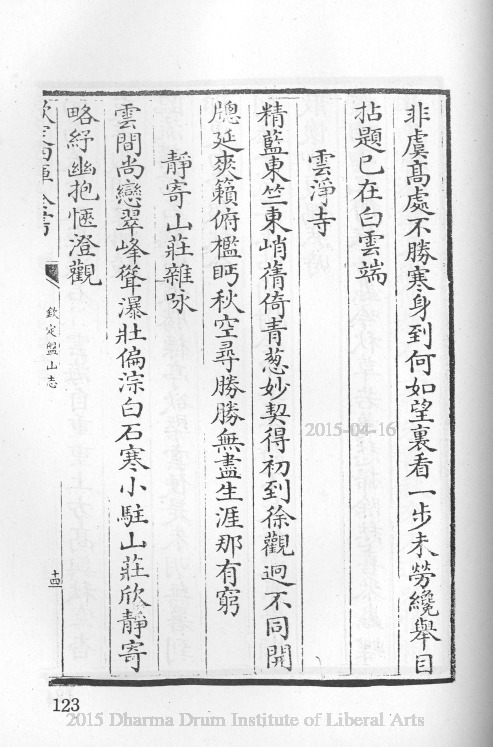 非虞髙處不勝寒身到何如望裏看一步未勞纔舉目
拈題已在白雲端
雲淨寺
精藍東竺東峭蒨倚青葱妙契得初到徐觀迥不同開
牕延爽籟俯檻眄秋空尋勝勝無盡生涯那有窮
靜寄山莊雜咏
雲間尚戀翠峰聳瀑壯偏淙白石寒小駐山莊欣靜寄
略紓幽抱愜澄觀
欽定四庫全書
欽定盤山志
十四
123
2015-04-16
2015 Dharma Drum Institute of Liberal Arts